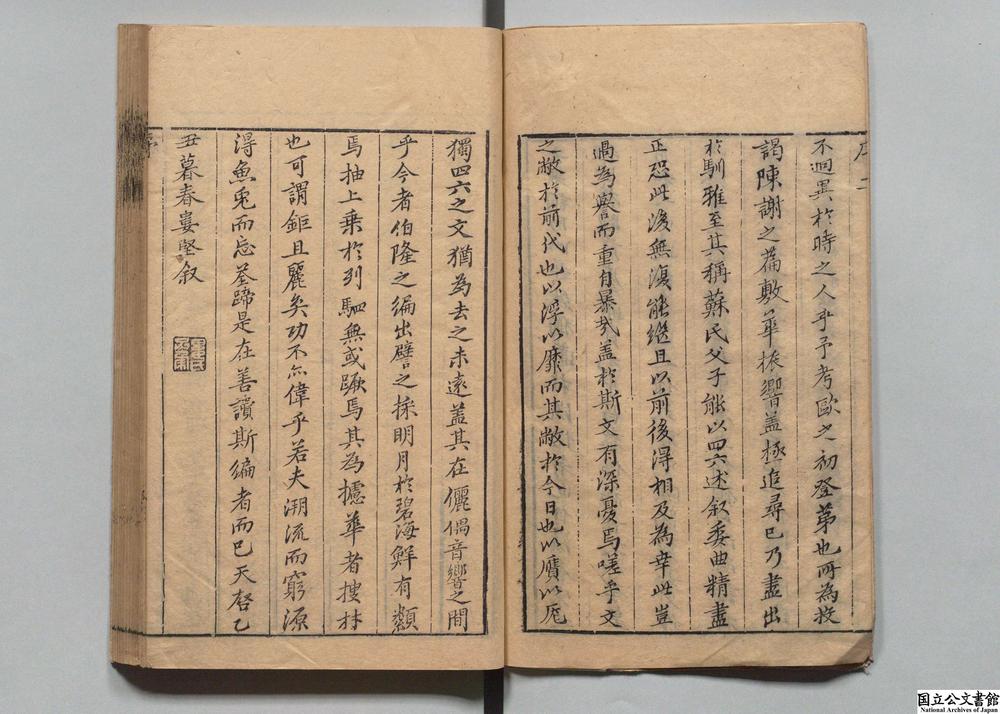 不迥異於時之人乎予考歐之初登第也所為投
謁陳謝之篇敷華振響盖極追尋已乃盡出
於馴雅至其稱蘇氏父子能以四六述叙委曲精盡
正恐此後無復能繼且以前後得相及為幸此豈
過為譽而重自暴哉盖於斯文有深憂焉嗟乎文
之敝於前代也以浮以靡而其敝於今日也以贋以
獨四六之文猶為去之未遠盖其在儷偶音響之間
乎今者伯隆之編出譬之採明月於碧海鮮有纇
焉抽上乗於列駟無或蹶焉其為攄華者搜材
也可謂鉅且麗矣功不亦偉乎若夫溯流而窮源
得魚兎而忘筌蹄是在善讀斯編者而已天啓乙
丑暮春婁堅叙
国立公文書館
National Archives of Japan